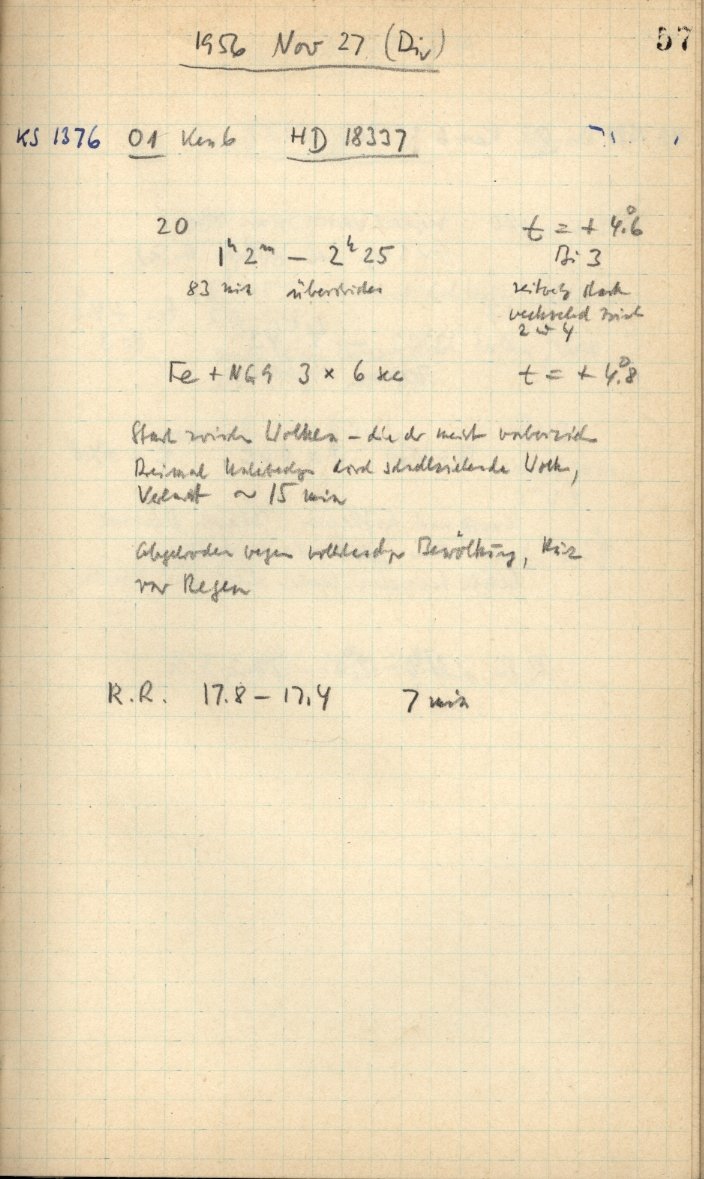 1956 Nov 27 (Div)
57
KS 1376 O1 HD 18337
20
t = + 4.°6
1ʰ 2ᵐ — 2ʰ 25
Bi 3
83 min
zeitweis stark
wechselnd zwisch
2 u 4
Fe + NG9 3 × 6 sec
t = + 4.°8
Start zwischen Wolken – die dr meist vorbeizieh
Dreimal durch schnellziehende Wolke,
Verlust ~ 15 min
Abgebrochen wegen vollständiger Bewölkung, kurz
vor Regen
R.R. 17.8 – 17.4 7 min